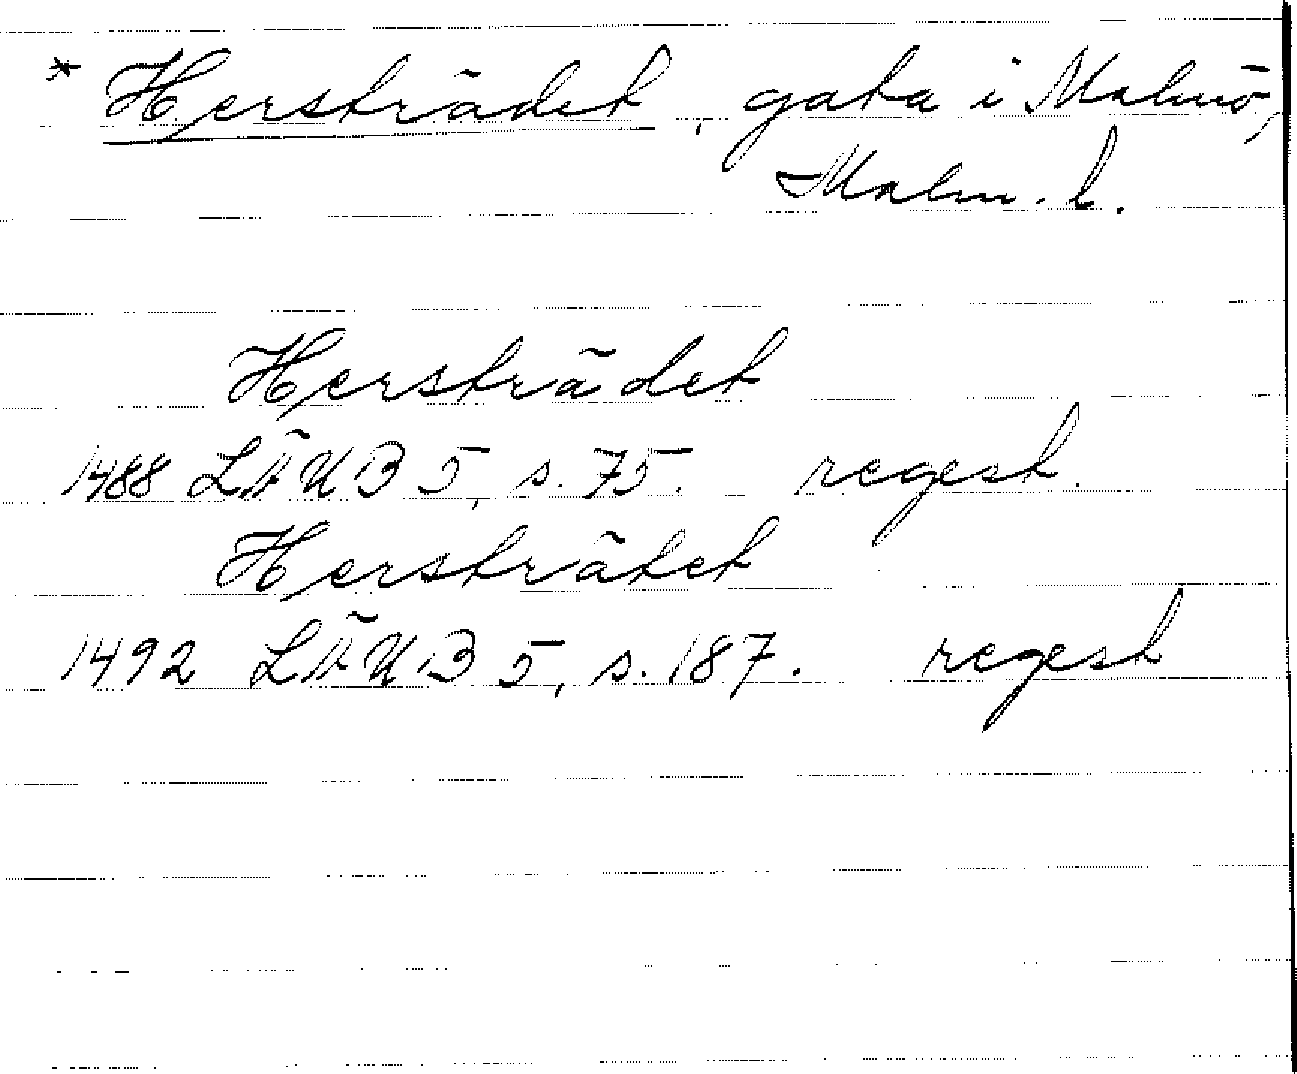 * Hersträdet, gata i Malmö,
Malm. l.
Hersträdet
1488 LÄUB 5, s. 75. regest.
Hersträtet
1492 LÄUB 5, s. 187. regest